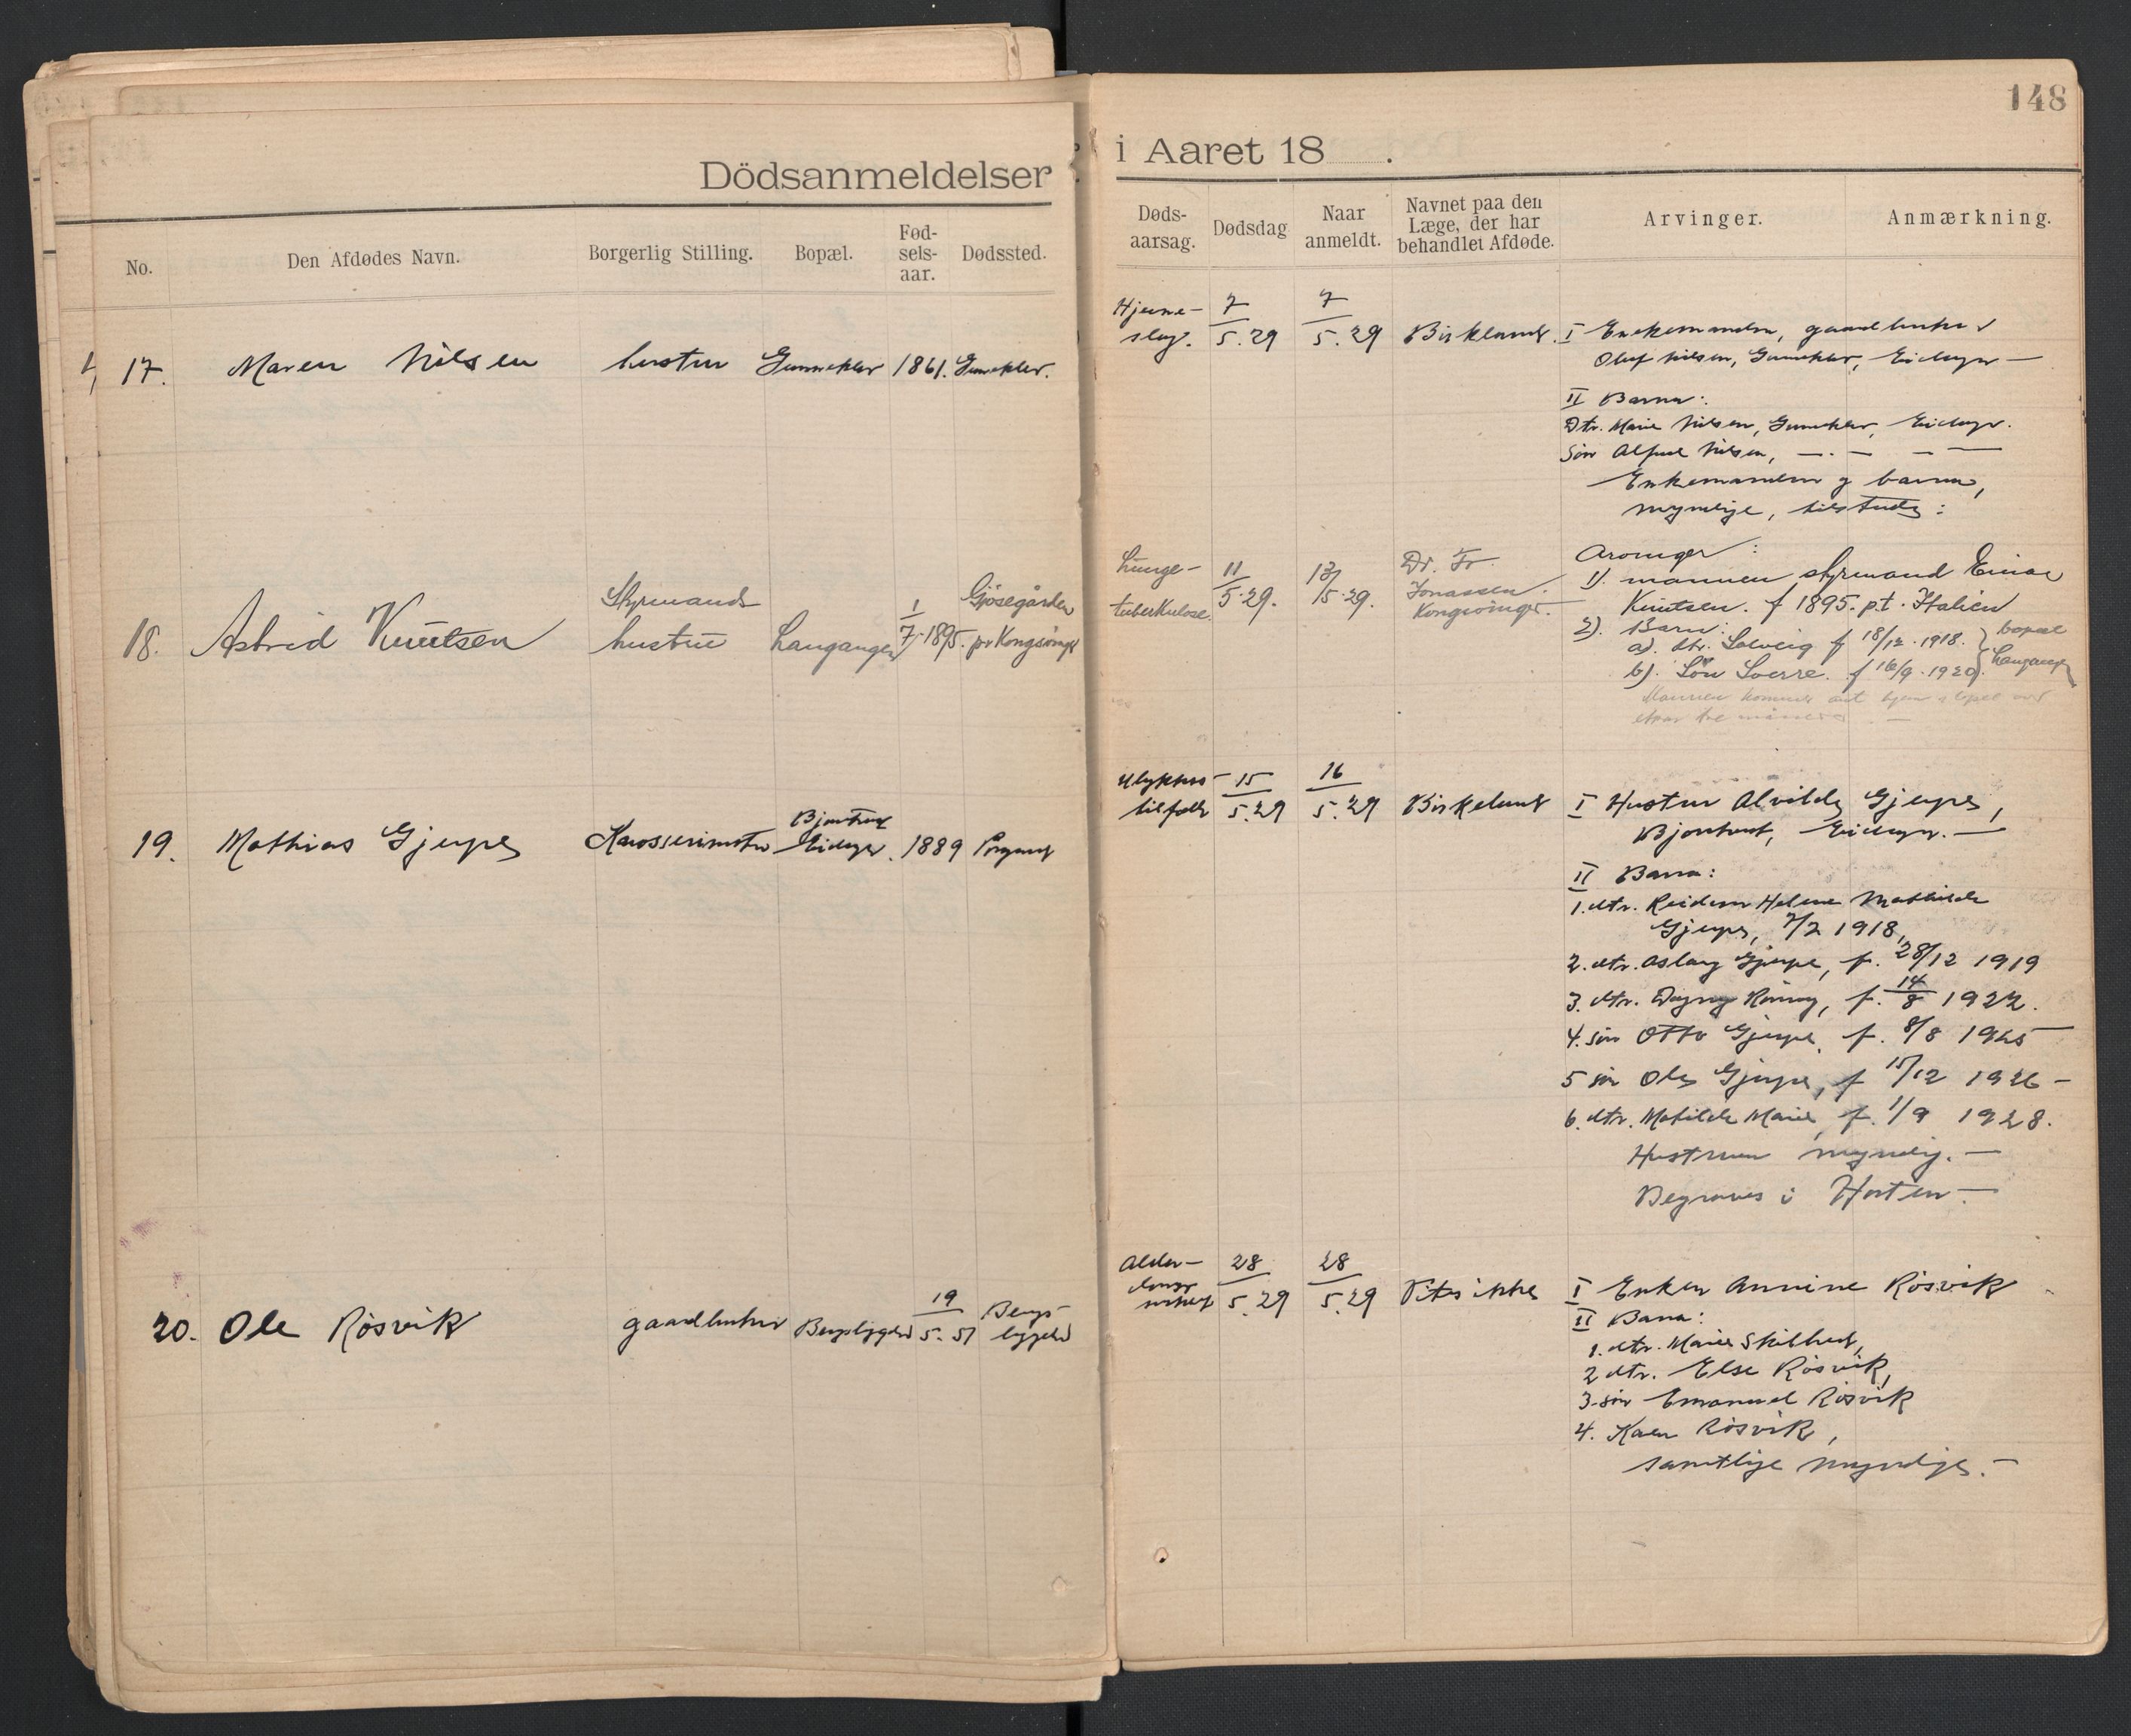 148
Dödsanmeldelser
i Aaret 18 .
No.
Den Afdødes Navn.
Borgerlig Stilling.
Bopæl.
Fød-
sels-
aar.
Dødssted.
Døds-
aarsag.
Dødsdag
Naar
anmeldt.
Navnet paa den
Læge, der har
behandlet Afdøde.
Arvinger.
Anmærkning.
17. Maren Nilsen hustru Gunneklev 1861. Gunneklev.
Hjerne-
slag.
7
5.29
7
5.29
Birkland.
I Enkemanden, gaardbruker
Oluf Nilsen, Gunneklev, Eidanger —
II Barna:
Dtr. Marie Nilsen, Gunneklev, Eidanger.
Søn Alfred Nilsen, — . — — —
Enkemanden og barna,
myndige, tilstede:
18. Astrid Knutsen
Styrmands
hustru
Langangen
1
7. 1895.
Gjøsegården
pr Kongsvinger
Lunge-
tuberkulose.
11
5.29.
13
/5.29.
Dr. Fr.
Jonassen.
Kongsvinger.
Arvinger:
1). mannen styrmand Einar
Knutsen. f 1895. p.t. Italien
2). Barn:
a). dtr. Solveig f 18/12.1918.
b). Søn Sverre. f 16/9.1920.
bopæl
Langangen
Mannen kommer hjem
tre måneder —
19. Mathias Gjerpe Karosserimster
Eidanger 1889 Porsgrund
Ulykkes-
tilfelle
15
5.29
16
5.29
Birkeland
I Hustru Alvilde Gjerpe,
Eidanger. —
II Barna:
1. dtr. Reidun Helene Mathilde
Gjerpe, 7/2 1918,
2. dtr. Aslaug Gjerpe, f. 28/12 1919
3. dtr. Dagny f. 14/8 1922.
4. søn Otto Gjerpe, f. 8/8 1925
5 søn Ole Gjerpe, f 15/12 1926 —
6. dtr. Matilde Marie, f. 1/9 1928.
Hustruen myndig. —
Begraves i Horten —
20. Ole Røsvik gaardbruker Bergsbygden
19
5. 51
Bergs-
bygden
Alder-
doms-
svakhet
28
5.29
28
5.29
Vites ikke
I Enken Annine Røsvik
II Barna:
1. dtr. Marie
2 dtr. Else Røsvik,
3. søn Emanuel Røsvik
4. Karen Røsvik,
samtlige myndige. —